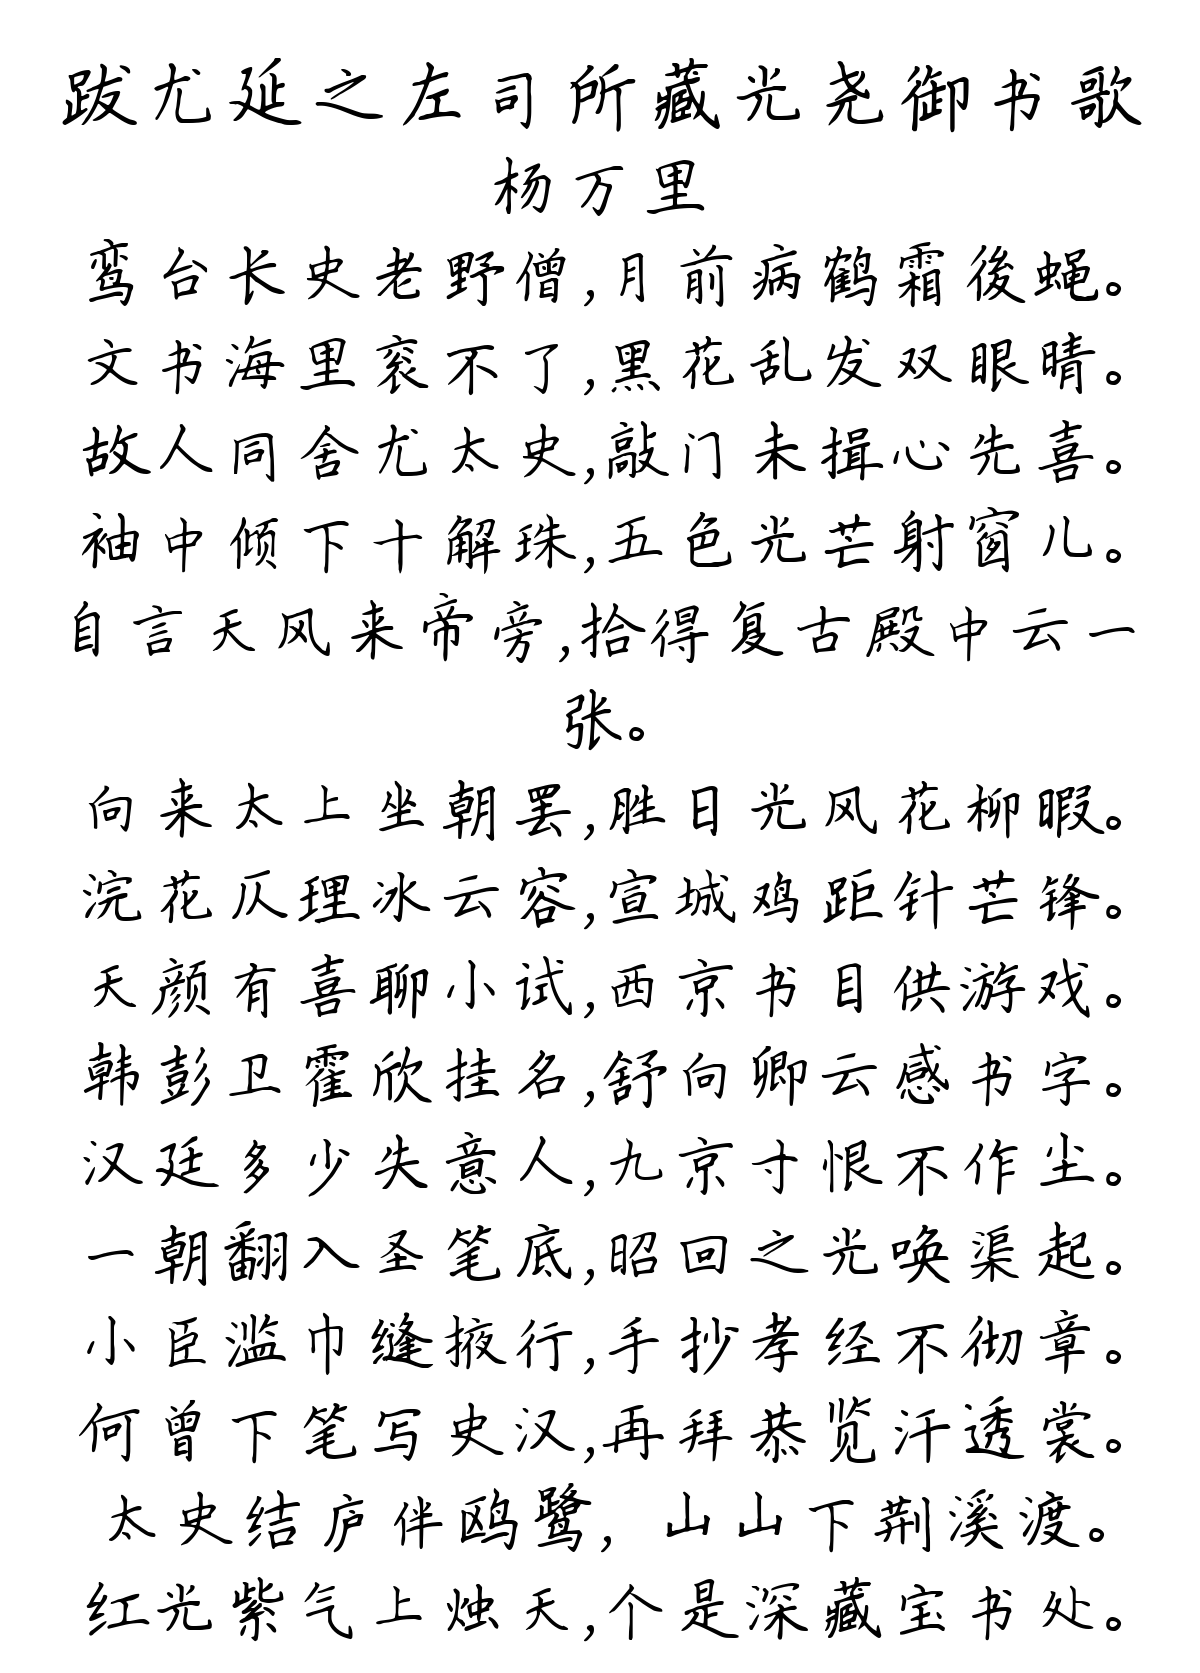 跋尤延之左司所藏光尧御书歌
杨万里
鸾台长史老野僧,月前病鹤霜後蝇。
文书海里衮不了,黑花乱发双眼晴。
故人同舍尤太史,敲门未揖心先喜。
袖中倾下十解珠,五色光芒射窗儿。
自言天风来帝旁,拾得复古殿中云一
张。
向来太上坐朝罢,胜日光风花柳暇。
浣花仄理冰云容,宣城鸡距针芒锋。
天颜有喜聊小试,西京书目供游戏。
韩彭卫霍欣挂名,舒向卿云感书字。
汉廷多少失意人,九京寸恨不作尘。
一朝翻入圣笔底,昭回之光唤渠起。
小臣滥巾缝掖行,手抄孝经不彻章。
何曾下笔写史汉,再拜恭览汗透裳。
太史结庐伴鸥鹭，山山下荆溪渡。
红光紫气上烛天,个是深藏宝书处。